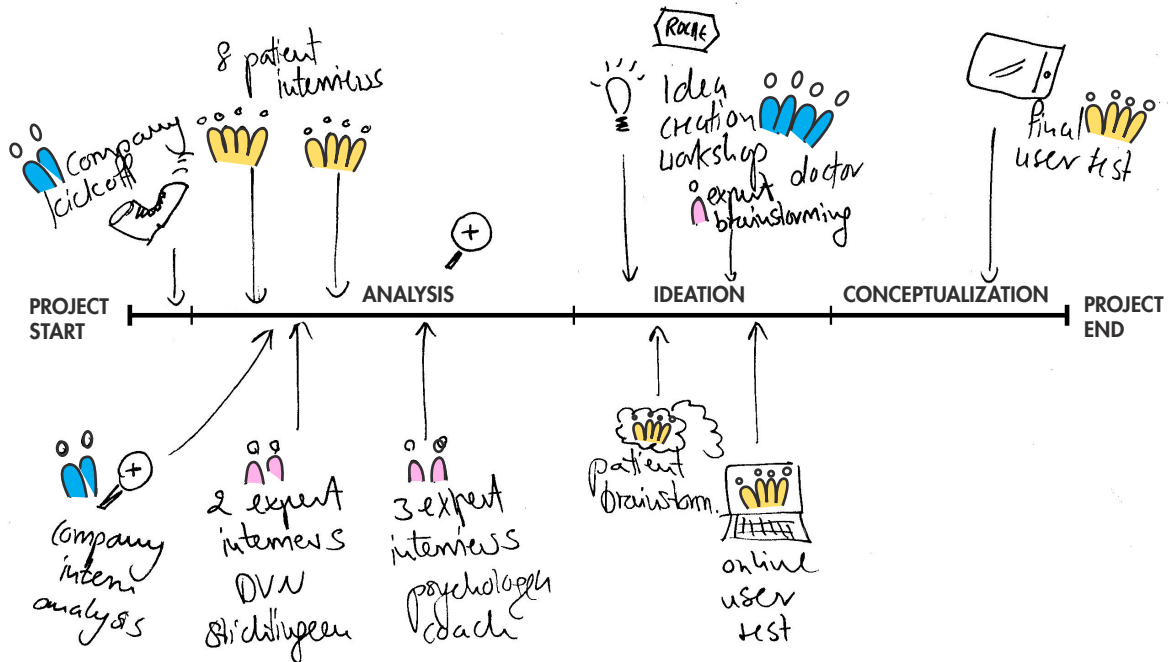 8 patient
interviews
company
kickoff
ROCHE
Idea
creation
workshop
doctor
expert
brainstorming
final
user test
PROJECT
START
ANALYSIS
IDEATION
CONCEPTUALIZATION
PROJECT
END
company
intern
analysis
2 expert
interviews
DVN
stichtingeen
3 expert
interviews
psychologen
coach
patient
brainstorm.
online
user
test